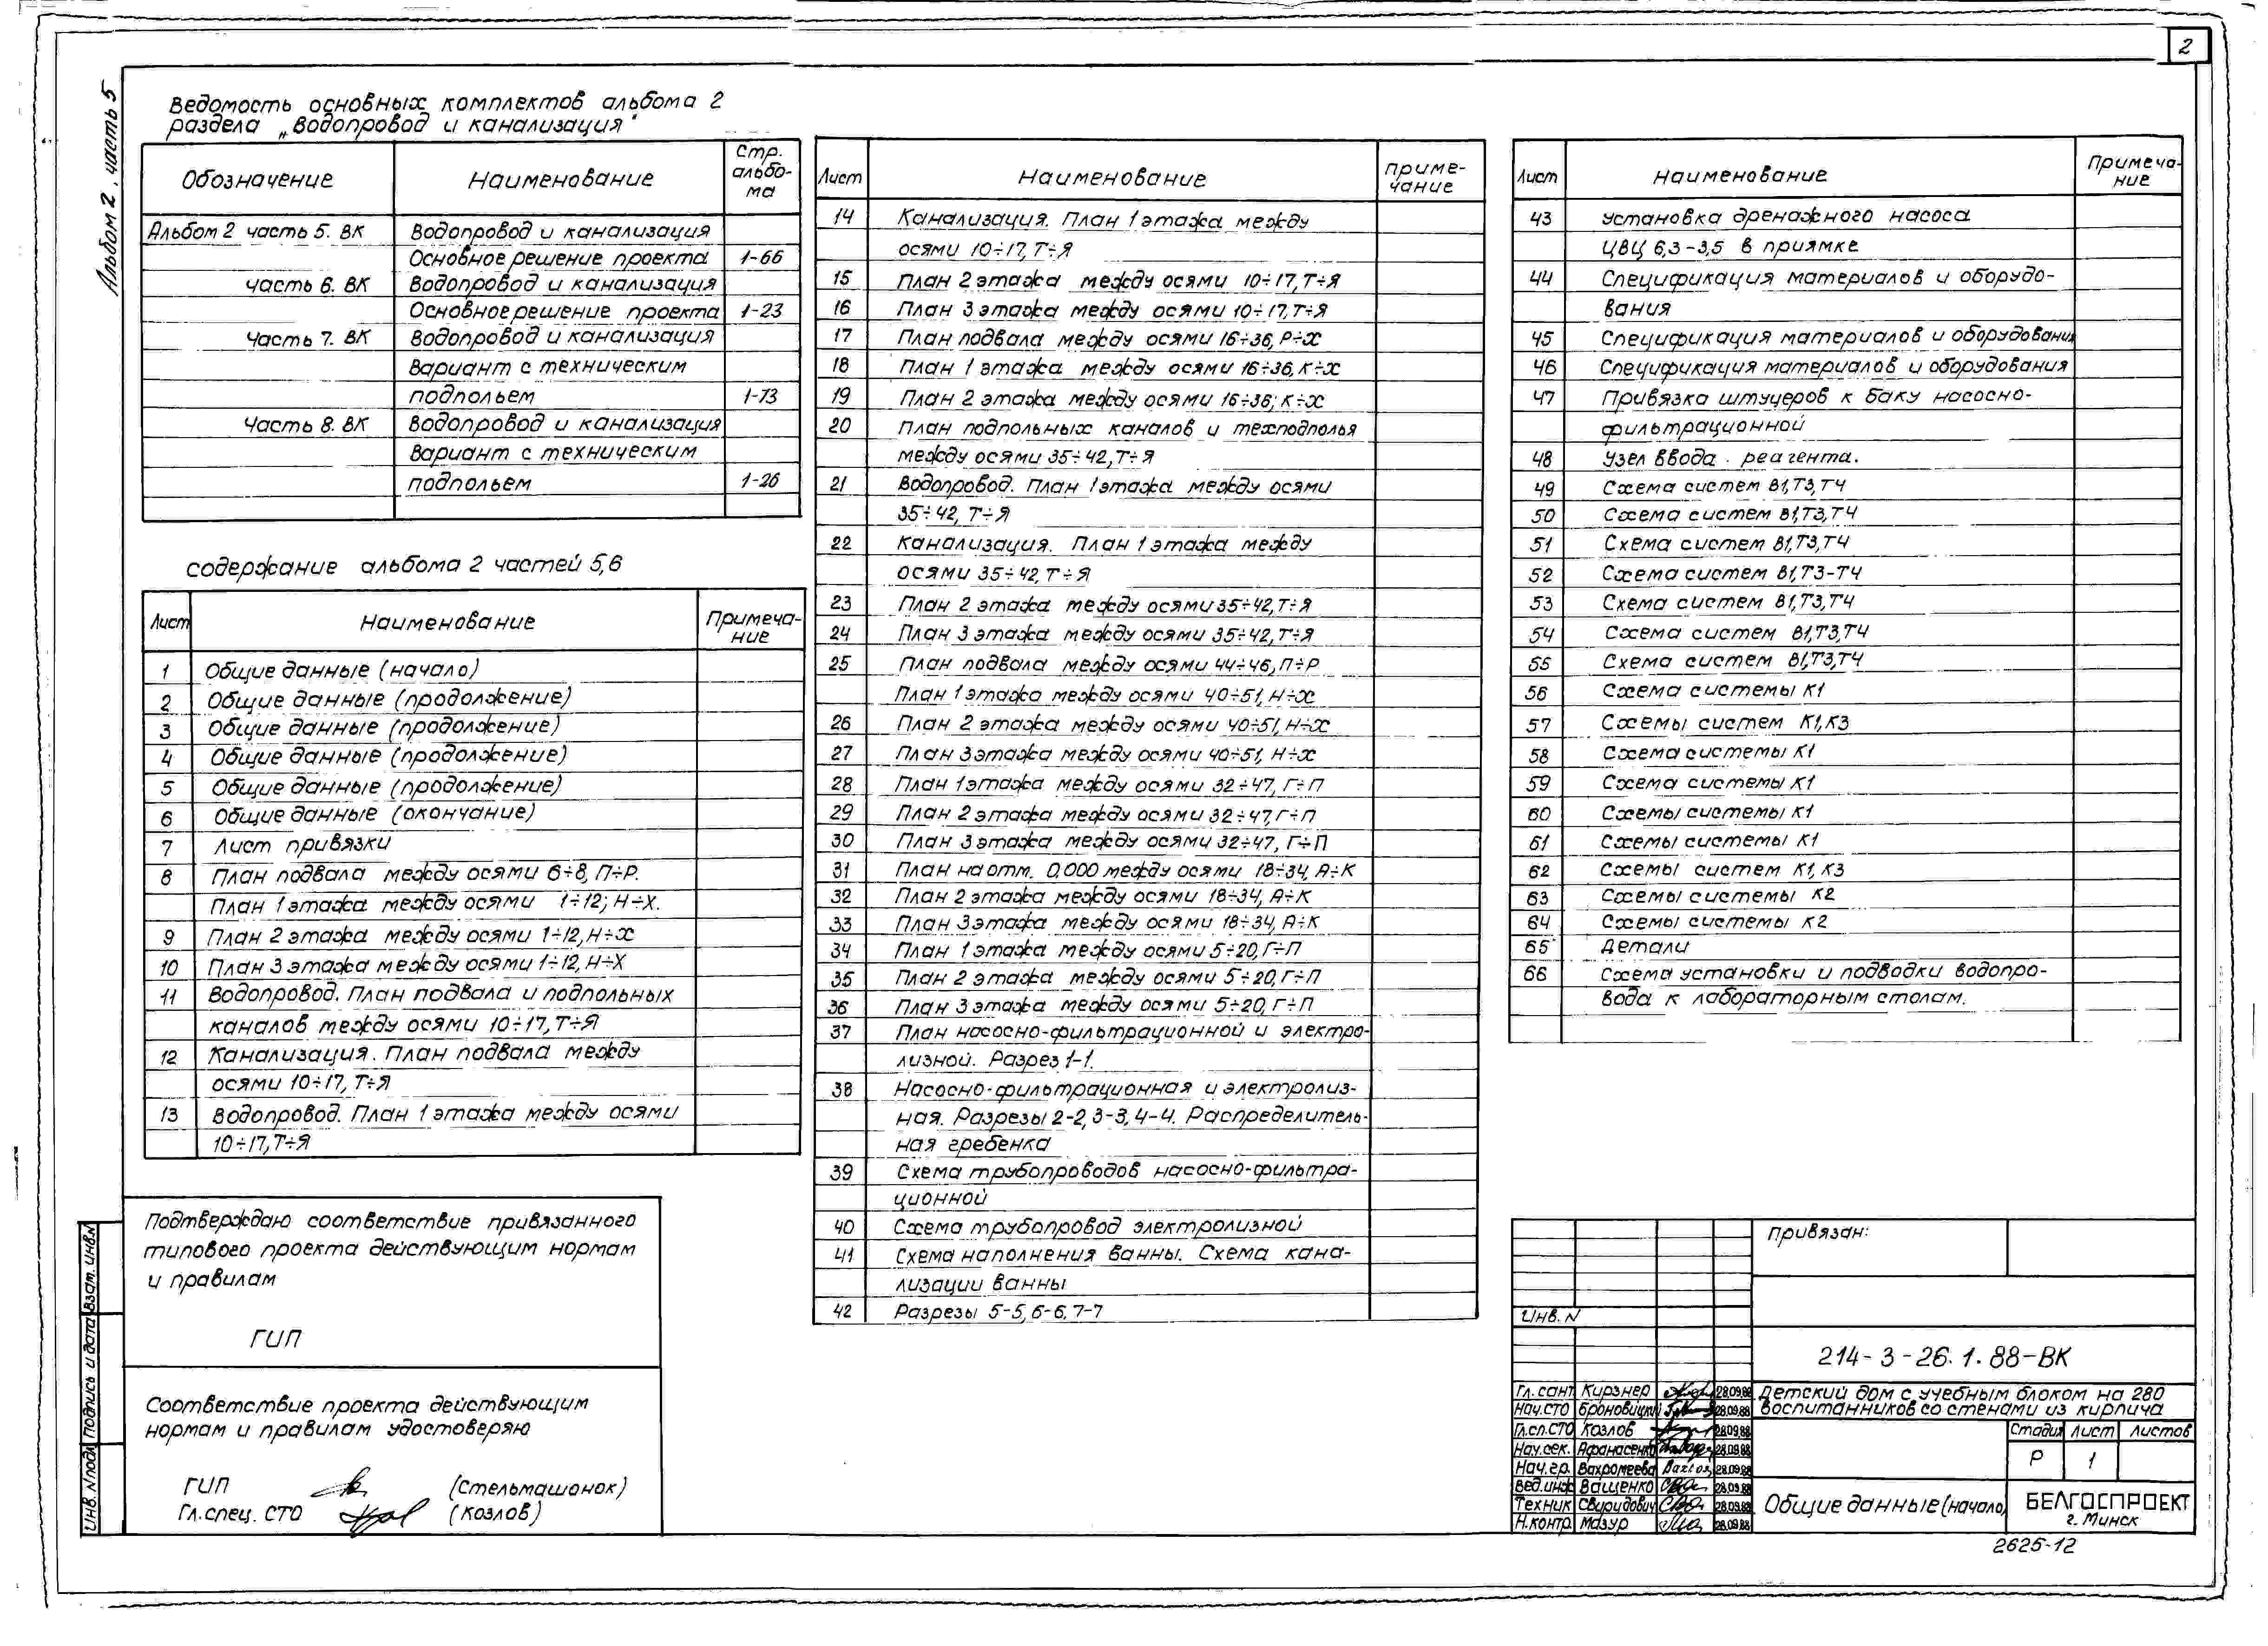 2
Альбом 2, часть 5
Ведомость основных комплектов альбома 2
раздела „Водопровод и канализация"
Обозначение Наименование Стр. альбо-ма
Альбом 2 часть 5. ВК Водопровод и канализация
Основное решение проекта 1-66
часть 6. ВК Водопровод и канализация
Основное решение проекта 1-23
Часть 7. ВК Водопровод и канализация
Вариант с техническим
подпольем 1-73
Часть 8. ВК Водопровод и канализация
Вариант с техническим
подпольем 1-26
содержание альбома 2 частей 5,6
Лист Наименование Примеча-ние
1 Общие данные (начало)
2 Общие данные (продолжение)
3 Общие данные (продолжение)
4 Общие данные (продолжение)
5 Общие данные (продолжение)
6 Общие данные (окончание)
7 Лист привязки
8 План подвала между осями 6÷8, П÷Р.
План 1 этажа между осями 1÷12; Н÷Х.
9 План 2 этажа между осями 1÷12, Н÷Х
10 План 3 этажа между осями 1÷12, Н÷Х
11 Водопровод. План подвала и подпольных
каналов между осями 10÷17, Т÷Я
12 Канализация. План подвала между
осями 10÷17, Т÷Я
13 Водопровод. План 1 этажа между осями
10÷17, Т÷Я
Подтверждаю соответствие привязанного
типового проекта действующим нормам
и правилам
ГИП
Соответствие проекта действующим
нормам и правилам удостоверяю
ГИП (Стельмашонок)
Гл. спец. СТО (Козлов)
Взам. инв. N
Подпись и дата
Инв. N подл
Лист Наименование приме-чание
14 Канализация. План 1 этажа между
осями 10÷17, Т÷Я
15 План 2 этажа между осями 10÷17, Т÷Я
16 План 3 этажа между осями 10÷17, Т÷Я
17 План подвала между осями 16÷36, Р÷Х
18 План 1 этажа между осями 16÷36, К÷Х
19 План 2 этажа между осями 16÷36; К÷Х
20 План подпольных каналов и техподполья
между осями 35÷42, Т÷Я
21 Водопровод. План 1 этажа между осями
35÷42, Т÷Я
22 Канализация. План 1 этажа между
осями 35÷42, Т÷Я
23 План 2 этажа между осями 35÷42, Т÷Я
24 План 3 этажа между осями 35÷42, Т÷Я
25 План подвала между осями 44÷46, П÷Р
План 1 этажа между осями 40÷51, Н÷Х
26 План 2 этажа между осями 40÷51, Н÷Х
27 План 3 этажа между осями 40÷51, Н÷Х
28 План 1 этажа между осями 32÷47, Г÷П
29 План 2 этажа между осями 32÷47, Г÷П
30 План 3 этажа между осями 32÷47, Г÷П
31 План на отм. 0,000 между осями 18÷34, А÷К
32 План 2 этажа между осями 18÷34, А÷К
33 План 3 этажа между осями 18÷34, А÷К
34 План 1 этажа между осями 5÷20, Г÷П
35 План 2 этажа между осями 5÷20, Г÷П
36 План 3 этажа между осями 5÷20, Г÷П
37 План насосно-фильтрационной и электро-
лизной. Разрез 1-1.
38 Насосно-фильтрационная и электролиз-
ная. Разрезы 2-2, 3-3, 4-4. Распределитель-
ная гребенка
39 Схема трубопроводов насосно-фильтра-
ционной
40 Схема трубопровод электролизной
41 Схема наполнения ванны. Схема кана-
лизации ванны
42 Разрезы 5-5, 6-6, 7-7
Лист Наименование Примеча-ние
43 Установка дренажного насоса
ЦВЦ 6,3-3,5 в приямке
44 Спецификация материалов и оборудо-
вания
45 Спецификация материалов и оборудования
46 Спецификация материалов и оборудования
47 Привязка штуцеров к баку насосно-
фильтрационной
48 Узел ввода. реагента.
49 Схема систем В1, Т3, Т4
50 Схема систем В1, Т3, Т4
51 Схема систем В1, Т3, Т4
52 Схема систем В1, Т3-Т4
53 Схема систем В1, Т3, Т4
54 Схема систем В1, Т3, Т4
55 Схема систем В1, Т3, Т4
56 Схема системы К1
57 Схемы систем К1, К3
58 Схема системы К1
59 Схема системы К1
60 Схемы системы К1
61 Схемы системы К1
62 Схемы систем К1, К3
63 Схемы системы К2
64 Схемы системы К2
65 Детали
66 Схема установки и подводки водопро-
вода к лабораторным столам.
Привязан:
Инв. N
214-3-26.1.88-ВК
Гл. сант Кирзнер 28.09.88
Нач. СТО Броновицкий 28.09.88
Гл. сп. СТО Козлов 28.09.88
Нач. сек. Афанасенко 28.09.88
Нач. гр. Вахромеева 28.09.88
Вед. инж Ващенко 28.09.88
Техник Свиридович 28.09.88
Н. контр. Мазур 28.09.88
Детский дом с учебным блоком на 280
воспитанников со стенами из кирпича
Стадия Лист Листов
Р 1
Общие данные (начало)
БЕЛГОСПРОЕКТ
г. Минск
2625-12